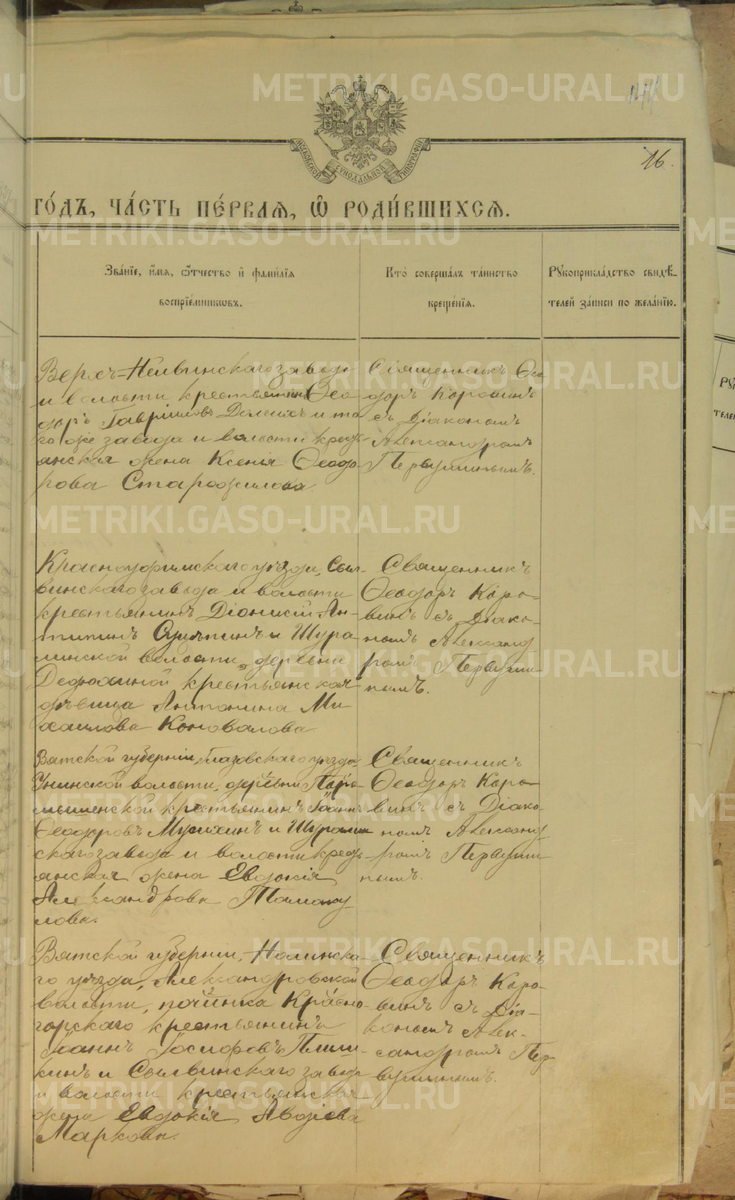 METRIKI.GASO-URAL.RU
16.
МОСКОВСКОЙ СѴНОДАЛЬНОЙ ТИПОГРАФІИ
ГО́ДЪ, ЧА́СТЬ ПЕ́РВАѦ, Ѡ РОДИ́ВШИХСѦ.
Зва́нїе, и́мѧ, ѻ҆́тчество и҆ фами́лїѧ
воспрїе́мникѡвъ.
Кто̀ соверша́лъ та́инство
креще́нїѧ.
Рꙋкоприкла́дство свидѣ́-
телей за́писи по жела́нїю.
Верхъ-Нейвинскаго завода
и волости крестьянинъ Ѳео-
доръ Гавріиловъ и то-
го же завода и волости кресть-
янская жена Ксенія Ѳеодо-
рова Старожилова
Священникъ Ѳео-
доръ Коровинъ
съ Діакономъ
Александромъ
Первушинымъ.
Красноуфимскаго уѣзда, Сыл-
винскаго завода и волости
крестьянинъ Діонисій Ан-
типинъ и Шура-
линской волости, деревни
крестьянская
дѣвица Антонина Ми-
хаилова Коновалова
Священникъ
Ѳеодоръ Коро-
винъ съ Діако-
номъ Александ-
ромъ Первуши-
нымъ.
Вятской губерніи, Глазовскаго уѣзда
Унинской волости, деревни
крестьянинъ Іоаннъ
Ѳеодоровъ Мусихинъ и Шуралин-
скаго завода и волости кресть-
янская жена Евдокія
Александрова Талаку-
лова.
Священникъ
Ѳеодоръ Коро-
винъ съ Діако-
номъ Александ-
ромъ Первуши-
нымъ.
Вятской губерніи, Нолинска-
го уѣзда, Александровской
волости, починка Красно-
горскаго крестьянинъ
Іоаннъ Іосифовъ Плиш-
кинъ и Сылвинскаго завода
и волости крестьянская
жена Евдокія
Маркова.
Священникъ
Ѳеодоръ Коро-
винъ съ Діа-
кономъ Алек-
сандромъ Пер-
вушинымъ.